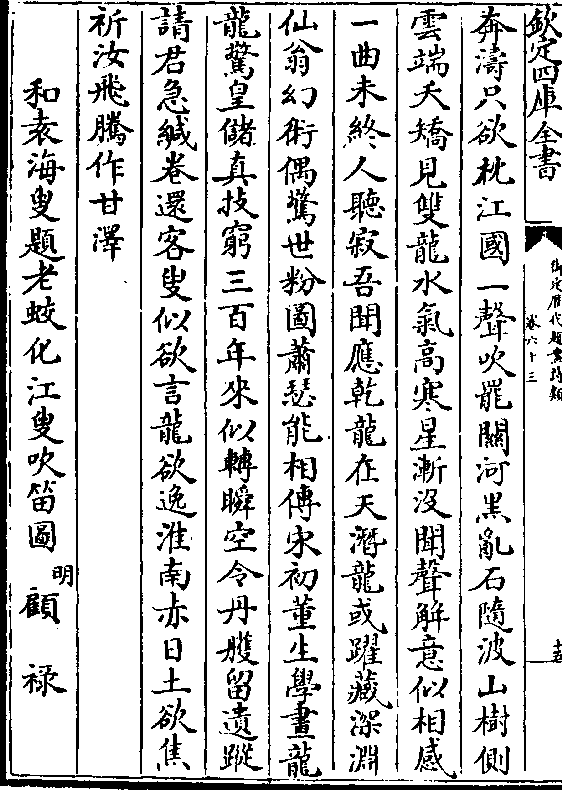 欽定四庫全書
御定歴代題畫詩類
卷六十三
十五
奔濤只欲枕江國一聲吹罷關河黑亂石隨波山樹側
雲端夭矯見雙龍水氣高寒星漸沒聞聲解意似相感
一曲未終人聽寂吾聞應乾龍在天潛龍或躍藏深淵
仙翁幻術偶驚世粉圖蕭瑟能相傳宋初董生學畫龍
龍驚皇儲真技窮三百年來似轉瞬空令丹雘留遺蹤
請君急緘卷還客叟似欲言龍欲逸淮南赤日土欲焦
祈汝飛騰作甘澤
和袁海叟題老蛟化江叟吹笛圖 明 顧祿